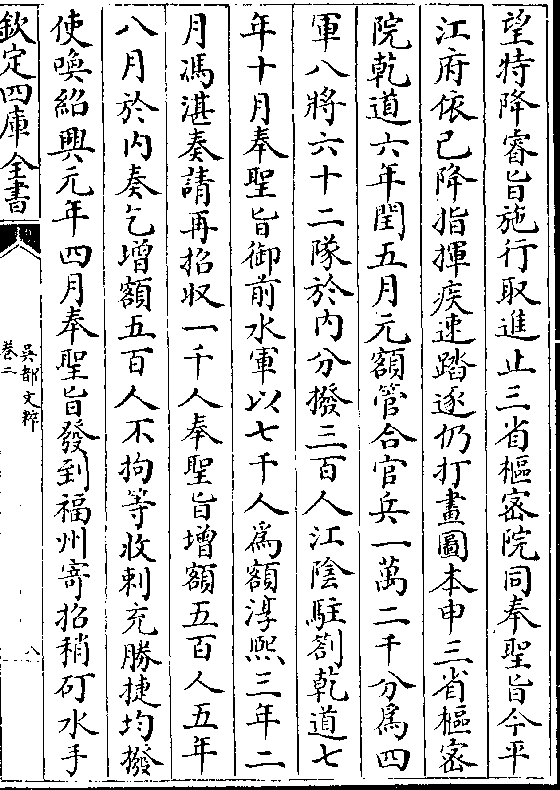 望特降睿旨施行取進止三省樞宻院同奉聖旨今平
江府依已降指揮疾速踏逐仍打畫圖本申三省樞宻
院乾道六年閏五月元額管合官兵一萬二千分爲四
軍八將六十二隊於内分撥三百人江陰駐劄乾道七
年十月奉聖旨御前水軍以七千人爲額淳熙三年二
月馮湛奏請再招收一千人奉聖旨增額五百人五年
八月於内奏乞增額五百人不拘等收剌充勝捷均撥
使喚紹興元年四月奉聖旨發到福州寄招稍矴水手
欽定四庫全書
吳都文粹
卷二
八